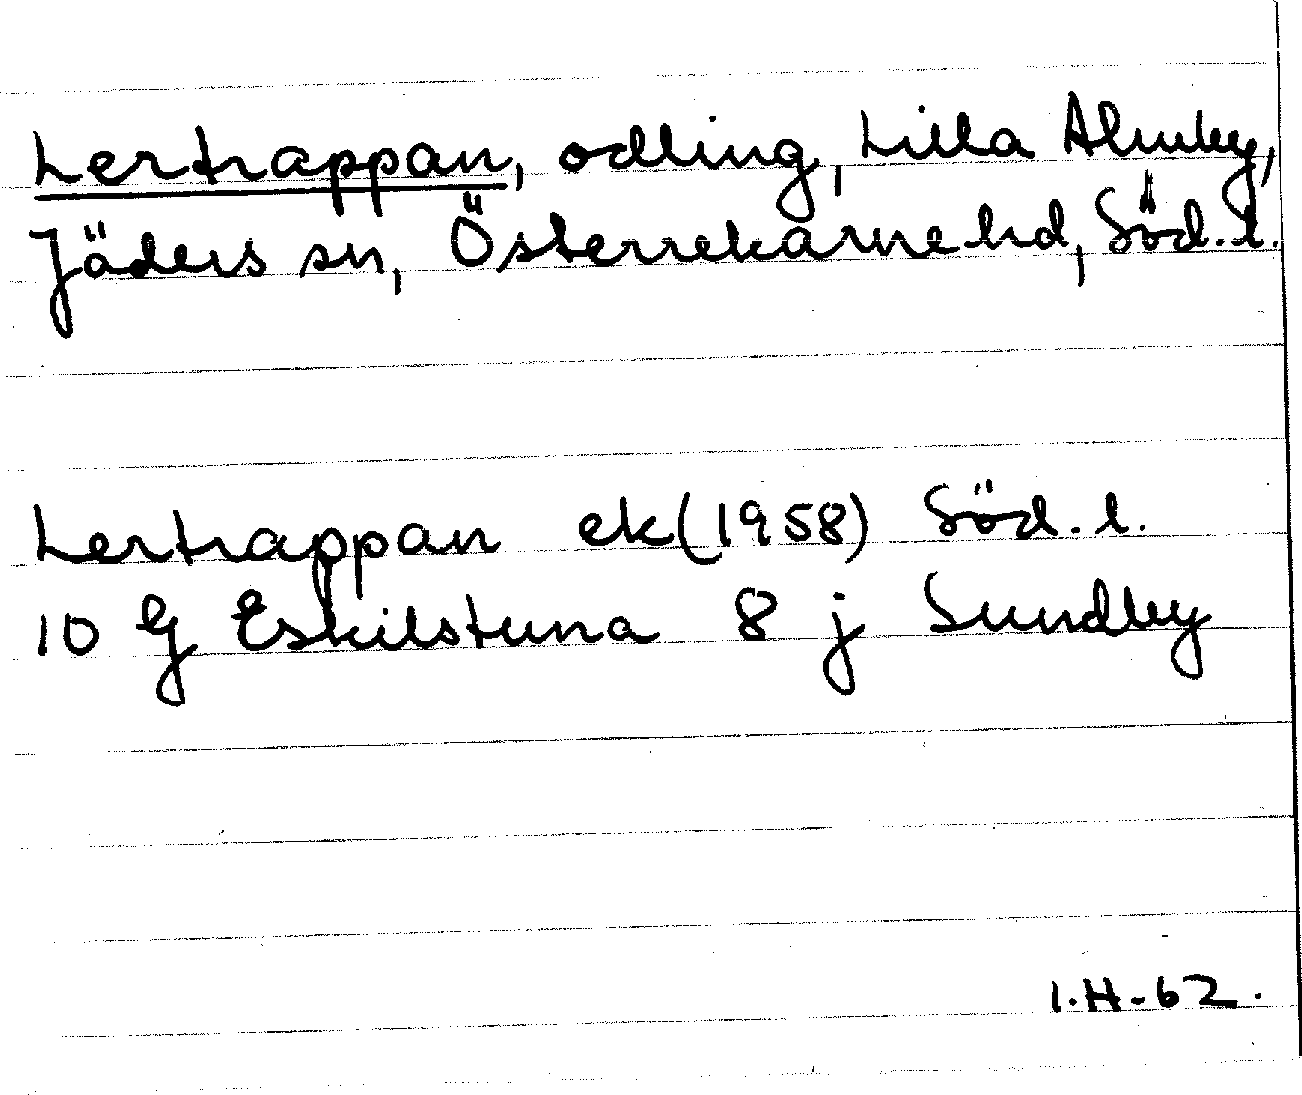 Lertrappan, odling, Lilla Almby,
Jäders sn, Österrekarne hd, Söd. l.
Lertrappan ek (1958) Söd. l.
10 G Eskilstuna 8 j Sundby
I.H-62.